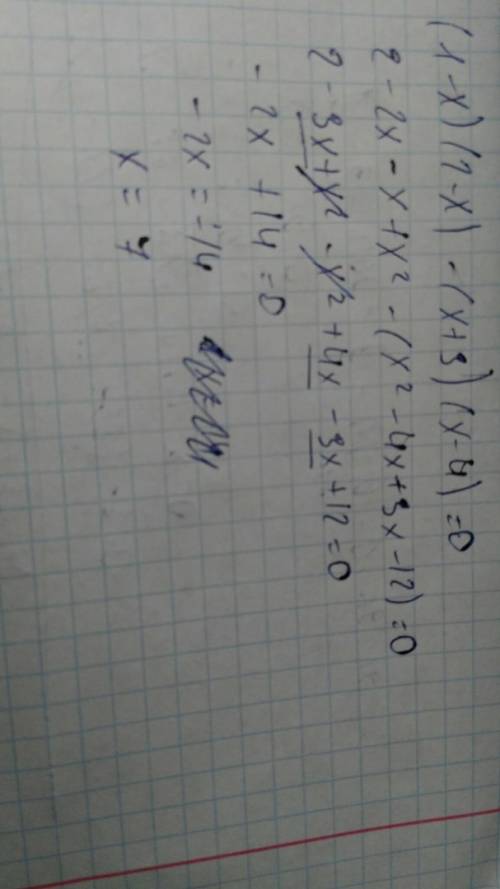 (1-x)(2-x) - (x+3)(x-4)=0
2-2x-x+x² - (x²-4x+3x-12)=0
2-3x+x² - x²+4x-3x+12=0
-2x+14=0
-2x=-14
x=7